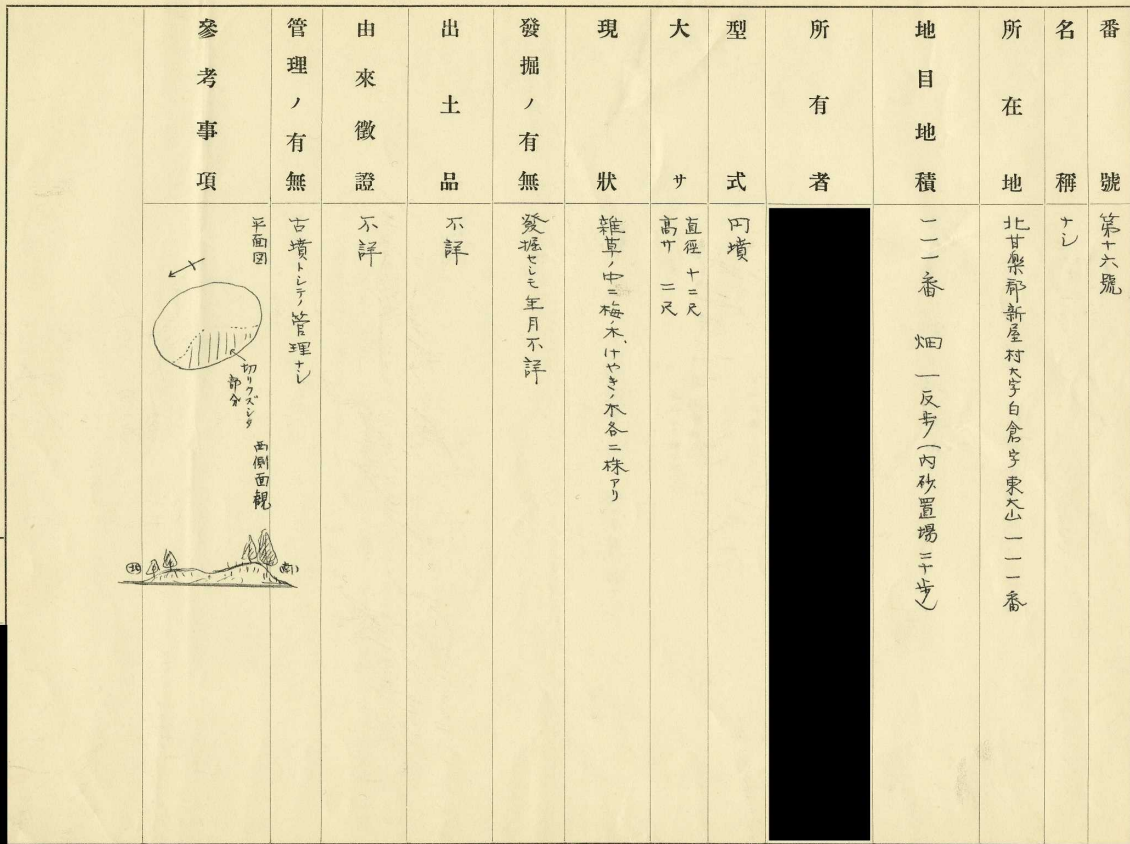 番號
第十六號
名稱
ナシ
所在地
北甘樂郡新屋村大字白倉字東大山一一一番
地目地積
一一一番 畑 一反歩(内砂置場二十歩)
所有者
型式
円墳
大サ
直徑 十二尺
高サ 二尺
現狀
雜草ノ中ニ梅ノ木、けやきノ木各二株アリ
發掘ノ有無
發掘セシモ年月不詳
出土品
不詳
由來徵證
不詳
管理ノ有無
古墳トシテノ管理ナシ
參考事項
平面図
切リクズシタ
部分
西側面観
北
南